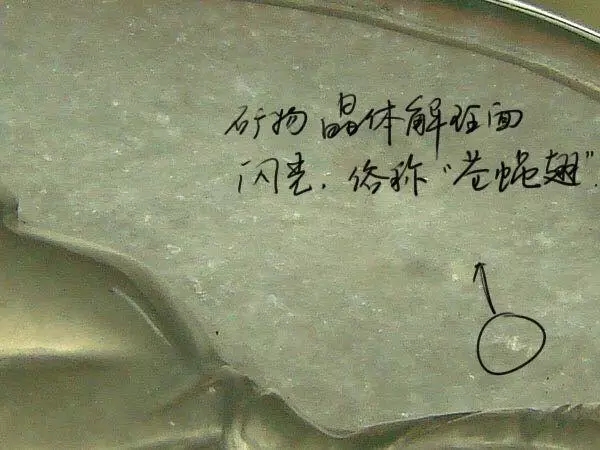 矿物晶体解理面
闪亮，俗称“苍蝇翅”。